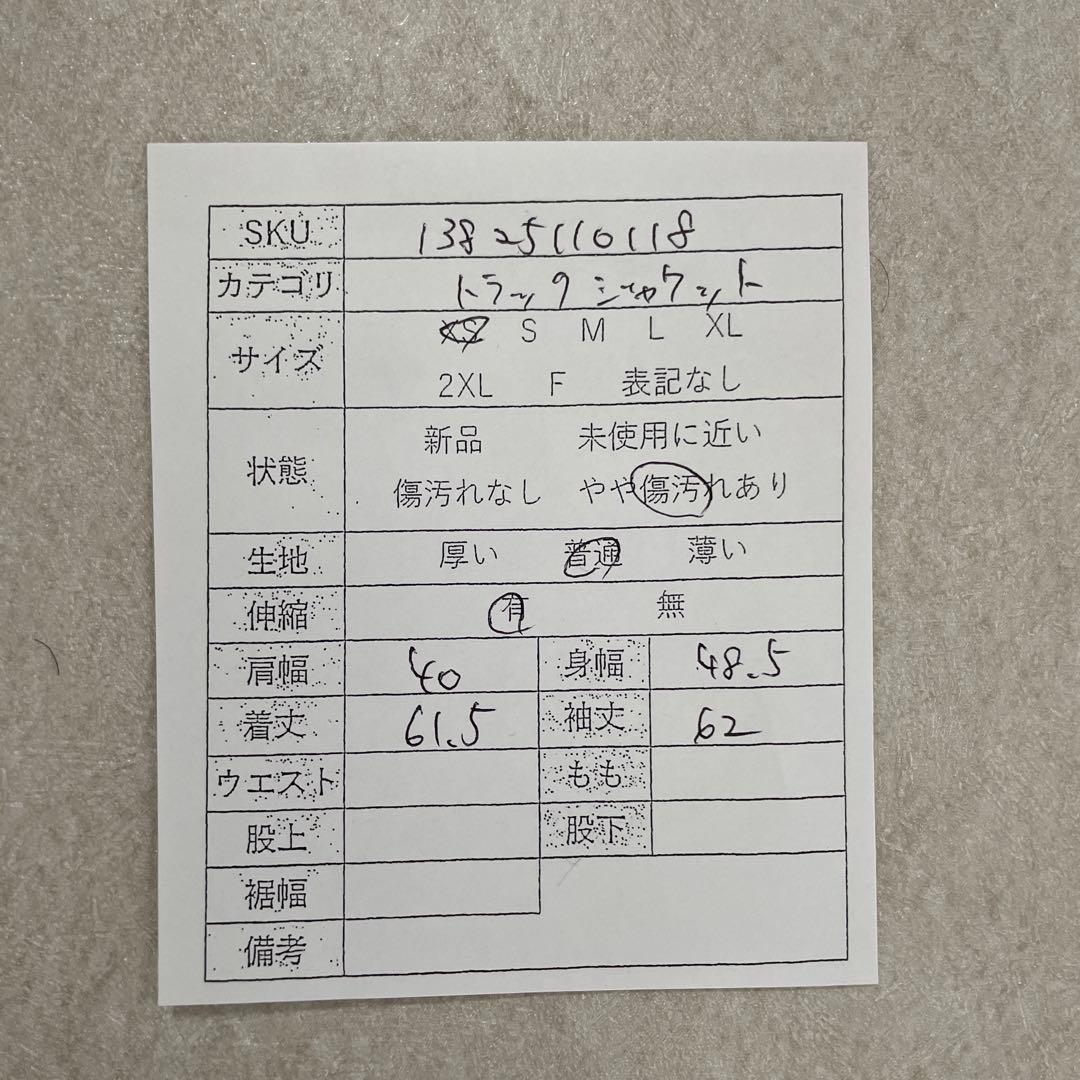 SKU 13825110118
カテゴリ トラックジャケット
サイズ XS S M L XL
2XL F 表記なし
状態 新品 未使用に近い
傷汚れなし やや傷汚れあり
生地 厚い 普通 薄い
伸縮 有 無
肩幅 40 身幅 48.5
着丈 61.5 袖丈 62
ウエスト もも
股上 股下
裾幅
備考